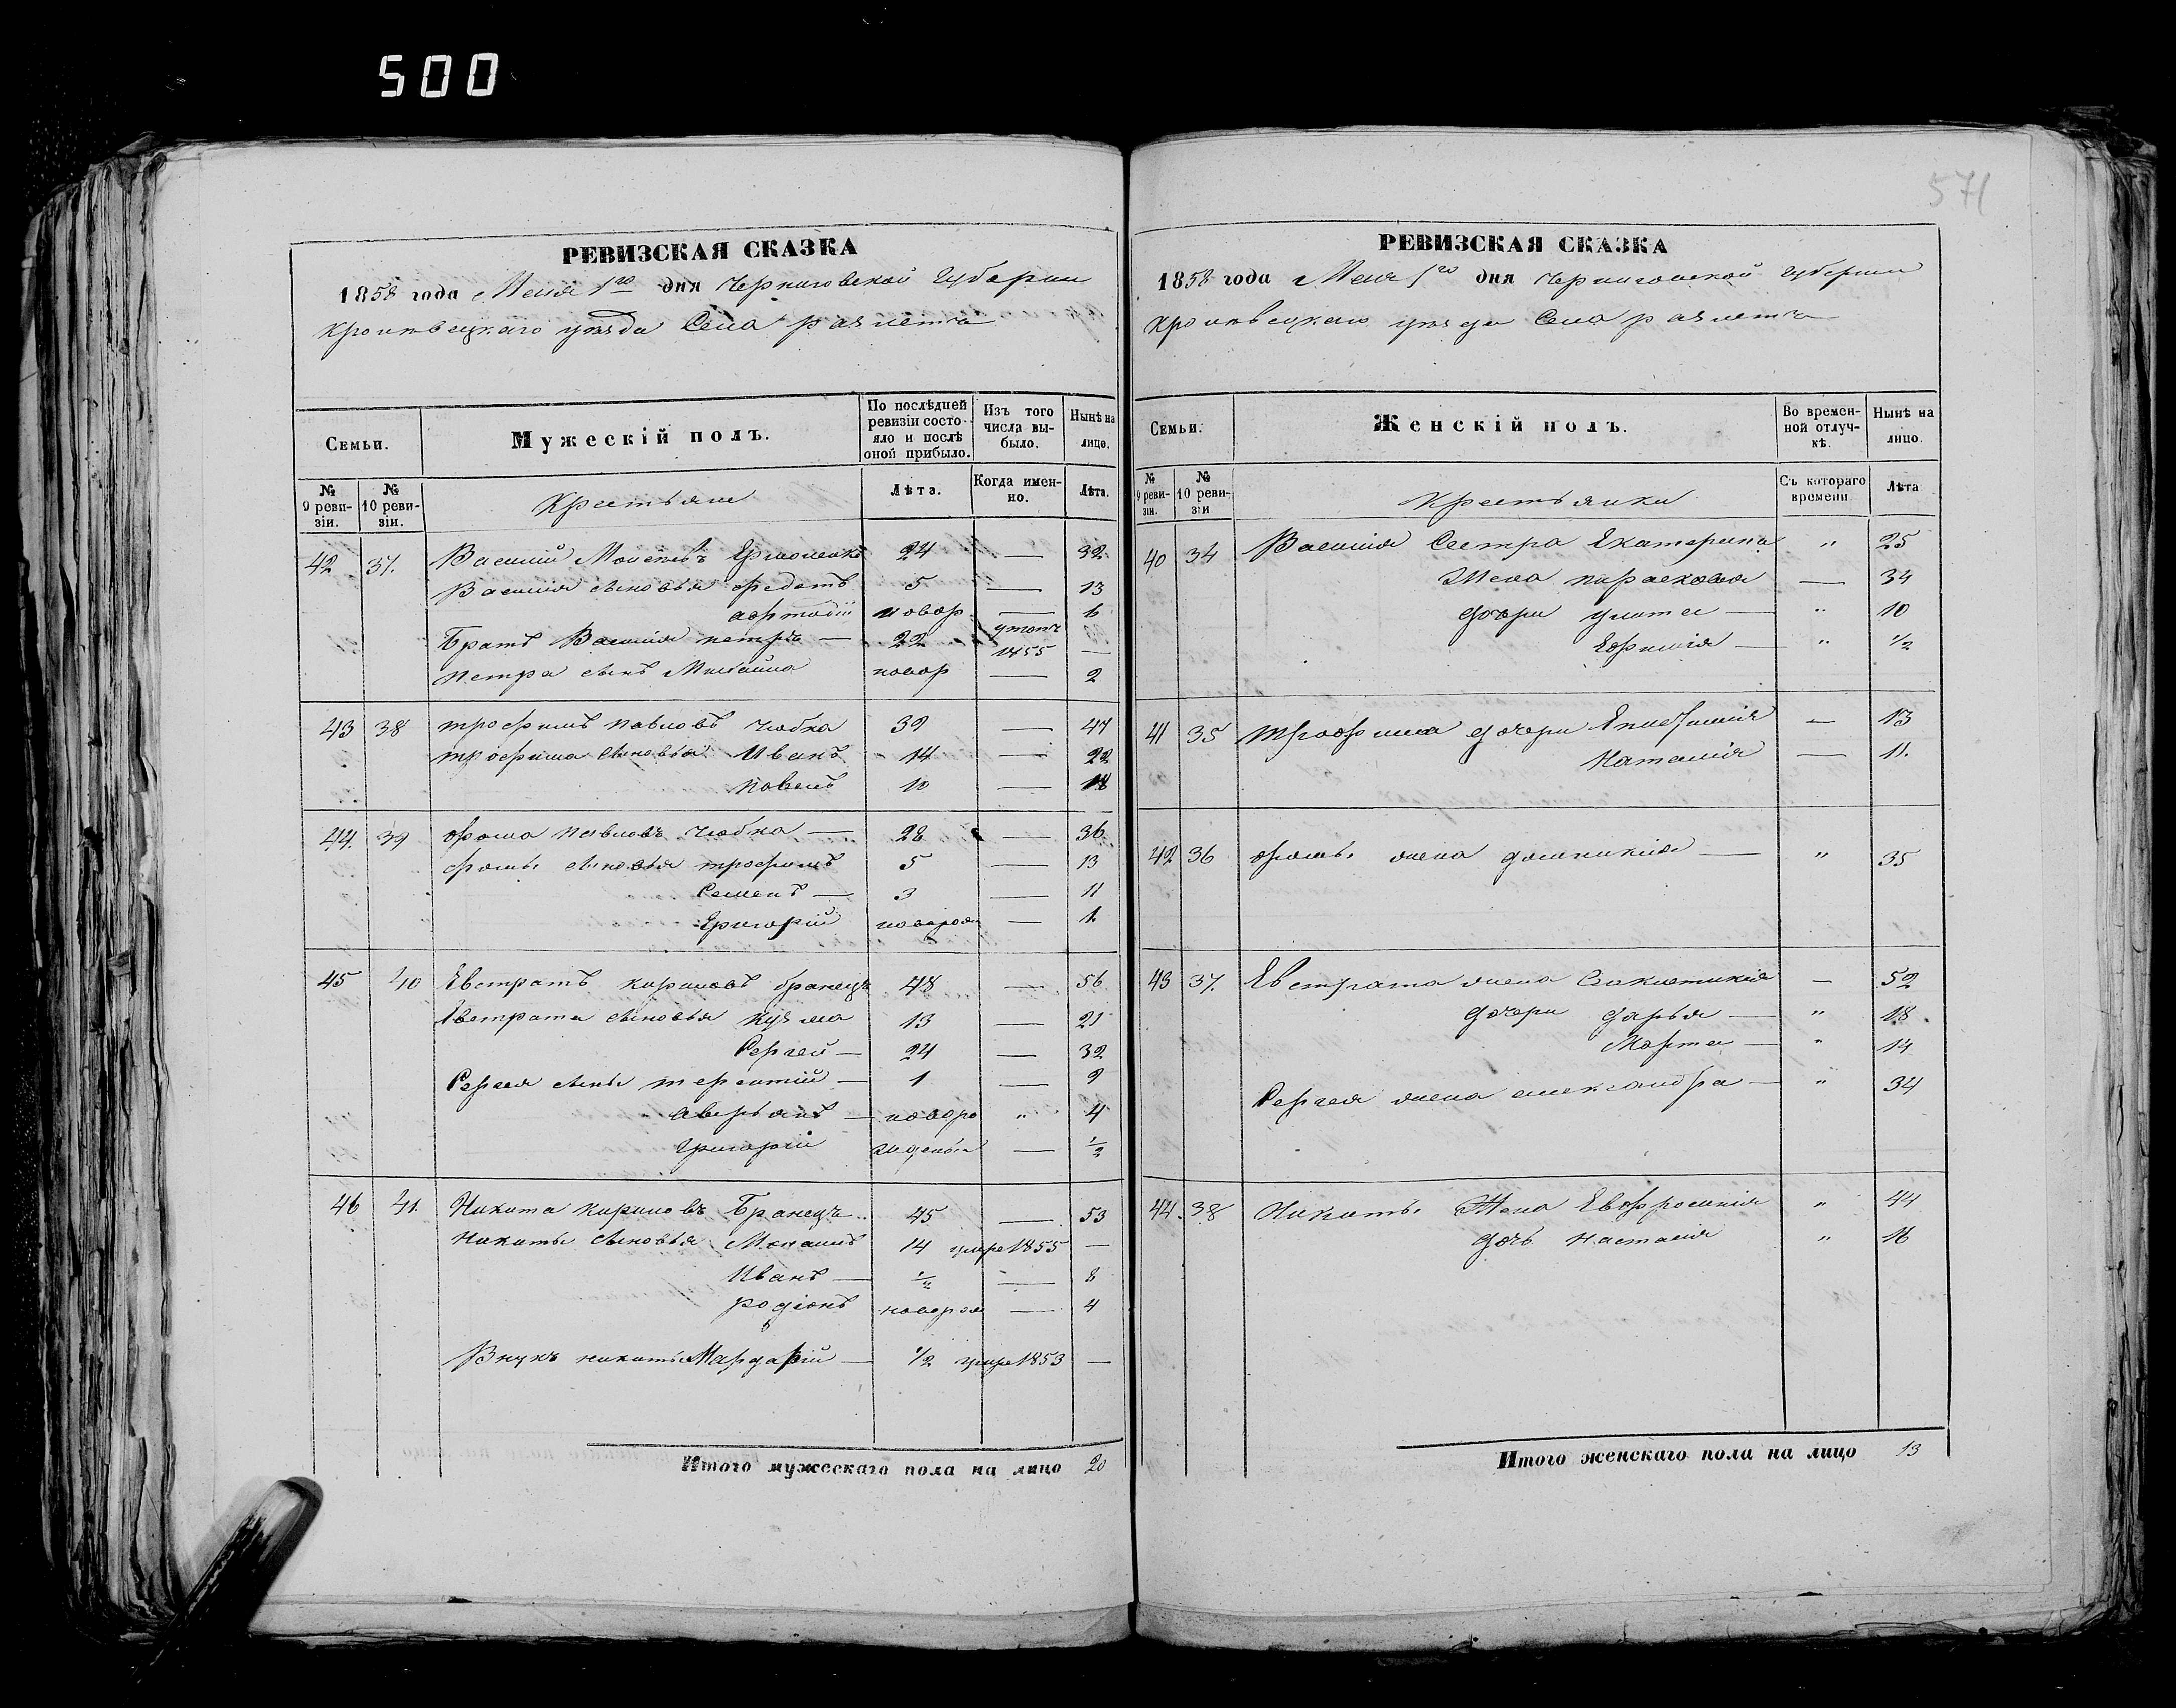 500
571
РЕВИЗСКАЯ СКАЗКА
1858 года Мая 1го дня Черниговской Губернии
Кролевецкаго уезда Села
Семьи.
Мужескій полъ.
По послѣдней ревизіи состояло и послѣ оной прибыло.
Изъ того числа выбыло.
Нынѣ на лицо.
№ 9 ревизіи.
№ 10 ревизіи.
Крестьяне
Лѣта.
Когда именно.
Лѣта.
42 37. Василий Ермоленко 24 — 32
Василия сыновья Федотъ 5 — 13
новор — 6
Братъ Василия петръ — 22 1855 —
петра сынъ Михайло новор — 2
43 38 трофимъ павловъ чобка 39 — 47
трофима сыновья Иванъ 14 — 22
павелъ 10 — 18
44 39 фома павловъ чобка — 28 — 36
фомы сыновья трофимъ 5 — 13
Семенъ — 3 — 11
Григорій новорож — 1.
45 40 Евстратъ кириловъ бранецъ 48 — 56
Евстрата сыновья кузма 13 — 21
Сергей — 24 — 32
Сергея сыны терентій — 1 — 9
аверьянъ — новоро " 4
Григорій жденыи — 1/2
46 41. Никита кириловъ Бранецъ 45 — 53
Никиты сыновья 14 умре 1855 —
Иванъ — 1/2 — 8
родіонъ новорож — 4
Внукъ никиты Мардарій — 1/2 умре 1853 —
Итого мужескаго пола на лицо 20
РЕВИЗСКАЯ СКАЗКА
1858 года Мая 1го дня Черниговской Губернии
Кролевецкаго уезда Села
Семьи.
Женскій полъ.
Во временной отлучкѣ.
Нынѣ на лицо.
№ 9 ревизіи.
№ 10 ревизіи
Крестьянки
Съ котораго времени
Лѣта
40 34 Василия Сестра Екатерина " 25
Жена парасковия — 34
дочери улита — " 10
— " 1/2
41 35 трофима дочери — 13
Наталия — 11.
42 36 фомы жена домникия — " 35
43 37. Евстрата жена — 52
дочери дарья — " 18.
Марта — " 14
Сергея жена александра — " 34
44. 38 Никиты Жена Евфросиния " 44
дочь настасия " 16
Итого женскаго пола на лицо 13